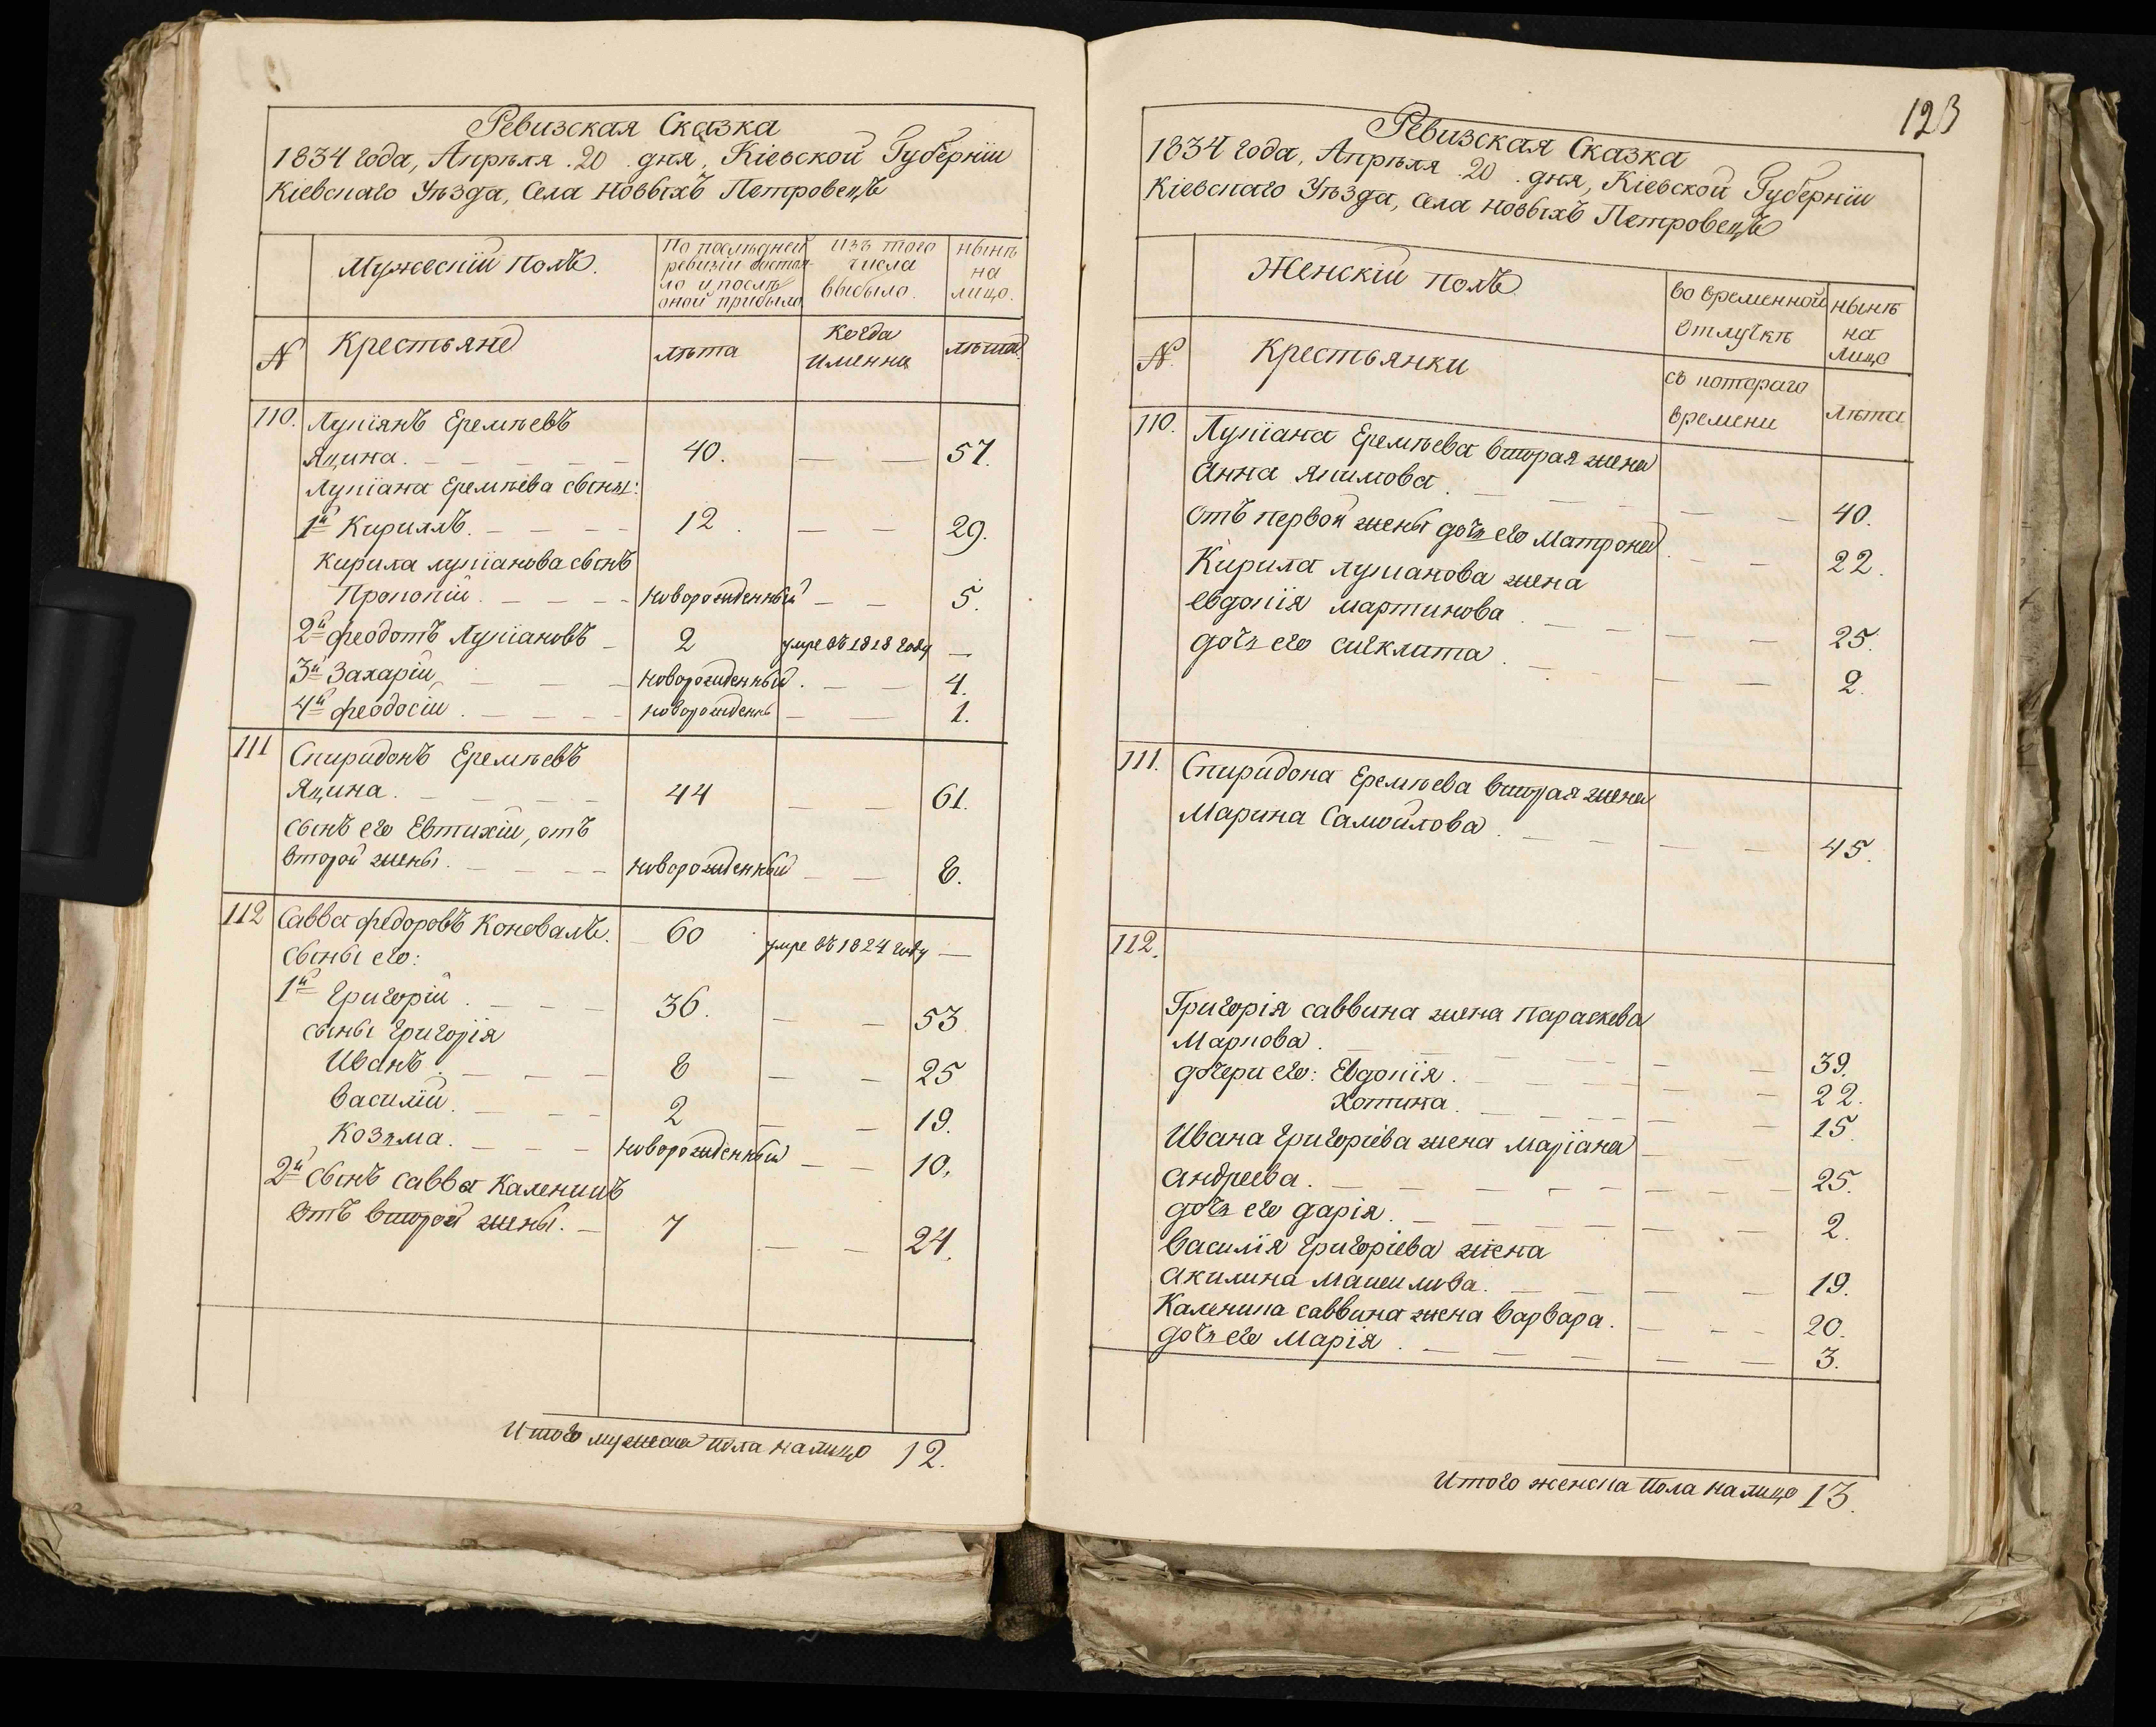 Ревизская Сказка
1834 года, Апрѣля 20 дня, Кіевской Губерніи
Кіевскаго Уѣзда, Села новыхъ Петровецъ
Мужескій полъ.
По послѣдней ревизіи состояло и послѣ оной прибыло
Изъ того числа выбыло.
нынѣ на лицо.
N Крестьяне
лѣта
Когда именно
лѣта.
110. Лукіянъ Еремѣевъ
Яцина. 40. 57.
Лукіана Еремѣева сыны:
1й Кириллъ. 12. 29.
Кирила лукіанова сынъ
Прокопій. новорожденный 5.
2й феодотъ Лукіановъ 2 умре въ 1818 году
3й Захарій новорожденный. 4.
4й феодосій. новорожденъ 1.
111 Спиридонъ Еремѣевъ
Яцина. 44 61.
сынъ его Евтихій, отъ
второй жены. новорожденный 8.
112 Савва федоровъ Коновалъ. 60 умре въ 1824 году
сыны его:
1й григорій. 36. 53
сыны григорія
Иванъ. 8 25
василій. 2 19.
козьма. новорожденный 10.
2й сынъ савва Каленикъ
отъ второй жены. 7 24.
Итого мужеска пола налицо 12.
123
Ревизская Сказка
1834 года, Апрѣля 20 дня, Кіевской Губерніи
Кіевскаго Уѣзда, села новыхъ Петровецъ
Женскій полъ
во временной отлучкѣ
нынѣ на лицо
N. Крестьянки
съ котораго времени
лѣта
110. Лукіана Еремѣева вторая жена
Анна Якимова. 40.
отъ первой жены дочь его Матрона. 22.
Кирила лукіанова жена
евдокія мартинова. 25.
дочь его сиеклита. 2.
111. Спиридона Еремѣева вторая жена
Марина Самойлова. 45.
112.
Григорія саввина жена параскева
Маркова. 39.
дочери его: Евдокія. 22.
хотина. 15.
Ивана григоріева жена маріана
андреева. 25.
дочь его дарія. 2.
василія григоріева жена
акилина 19.
Каленика саввина жена варвара. 20.
дочь его Марія. 3.
Итого женска пола налицо 13.